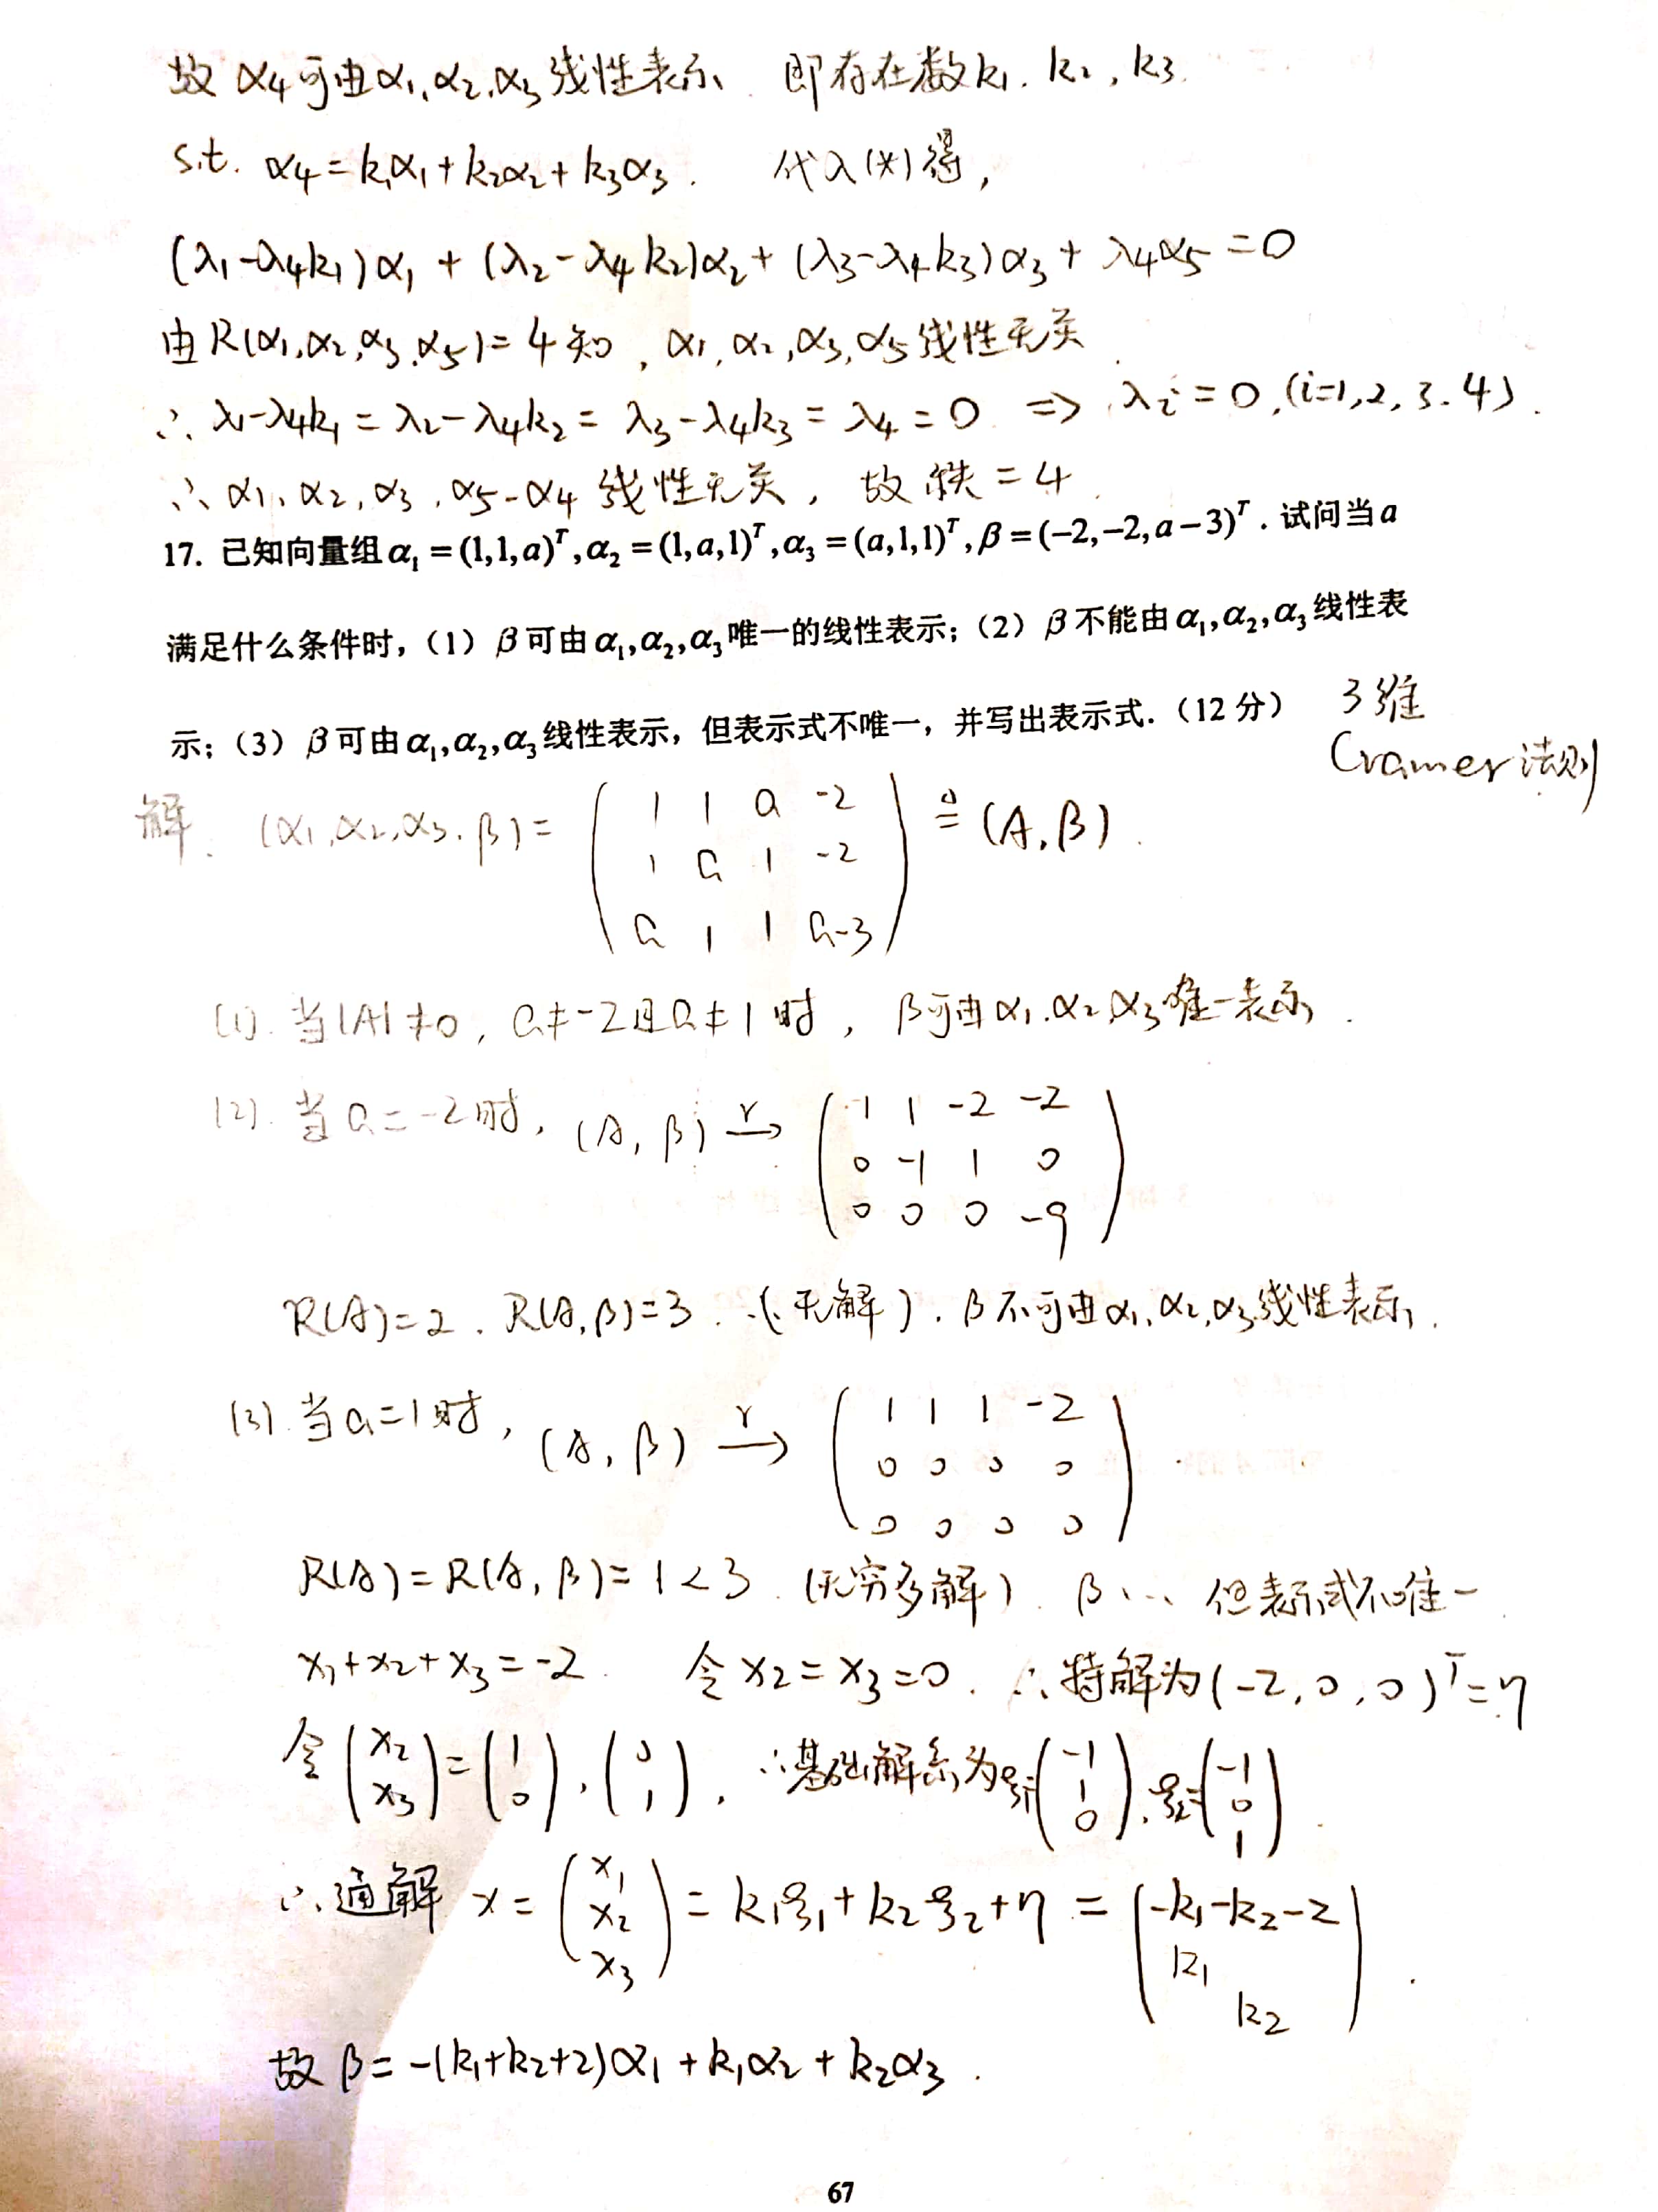 故 α4可由α1,α2,α3线性表示 即存在数k1, k2, k3.
s.t. α4=k1α1+k2α2+k3α3. 代入(*)得,
(λ1-λ4k1)α1 + (λ2-λ4k2)α2 + (λ3-λ4k3)α3 + λ4α5 = 0
由R(α1,α2,α3,α5)=4知, α1,α2,α3,α5线性无关
∴ λ1-λ4k1 = λ2-λ4k2 = λ3-λ4k3 = λ4 = 0 => λi = 0, (i=1,2,3.4).
∴ α1, α2, α3, α5-α4 线性无关, 故秩=4.
17. 已知向量组α₁=(1,1,a)ᵀ,α₂=(1,a,1)ᵀ,α₃=(a,1,1)ᵀ,β=(-2,-2,a-3)ᵀ. 试问当a
满足什么条件时,(1) β可由α₁,α₂,α₃唯一的线性表示;(2) β不能由α₁,α₂,α₃线性表
示;(3) β可由α₁,α₂,α₃线性表示,但表示式不唯一,并写出表示式.(12分)
3维
Cramer法则
解. (α1,α2,α3,β)= ( 1 1 a -2 ) ≜ (A,β).
1 a 1 -2
a 1 1 a-3
(1). 当|A|≠0, a≠-2且a≠1时, β可由α1,α2,α3唯一表示.
(2). 当a=-2时, (A,β) r→ ( 1 1 -2 -2 )
0 -1 1 0
0 0 0 -9
R(A)=2, R(A,β)=3. ∴(无解). β不可由α1,α2,α3线性表示.
(3). 当a=1时, (A,β) r→ ( 1 1 1 -2 )
0 0 0 0
0 0 0 0
R(A)=R(A,β)=1<3. (无穷多解). β … 但表示式不唯一
x1+x2+x3=-2. 令x2=x3=0. ∴特解为(-2,0,0)ᵀ=η
令 (x2 x3) = (1 0), (0 1), ∴基础解系为ξ1=(-1 1 0), ξ2=(-1 0 1)
∴通解 x = (x1 x2 x3) = k1ξ1+k2ξ2+η = (-k1-k2-2 k1 k2).
故β=-(k1+k2+2)α1+k1α2+k2α3.
67